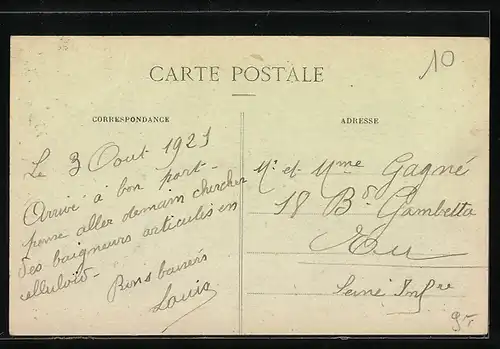 10
CARTE POSTALE
CORRESPONDANCE
ADRESSE
Le 3 Aout 1921
Arrivé à bon port -
pense aller demain chercher
des baigneurs articulés en
celluloïd -
Bons baisers
Louis
Mr et Mme Gagné
18 Bd Gambetta
Eu
Seine Infre